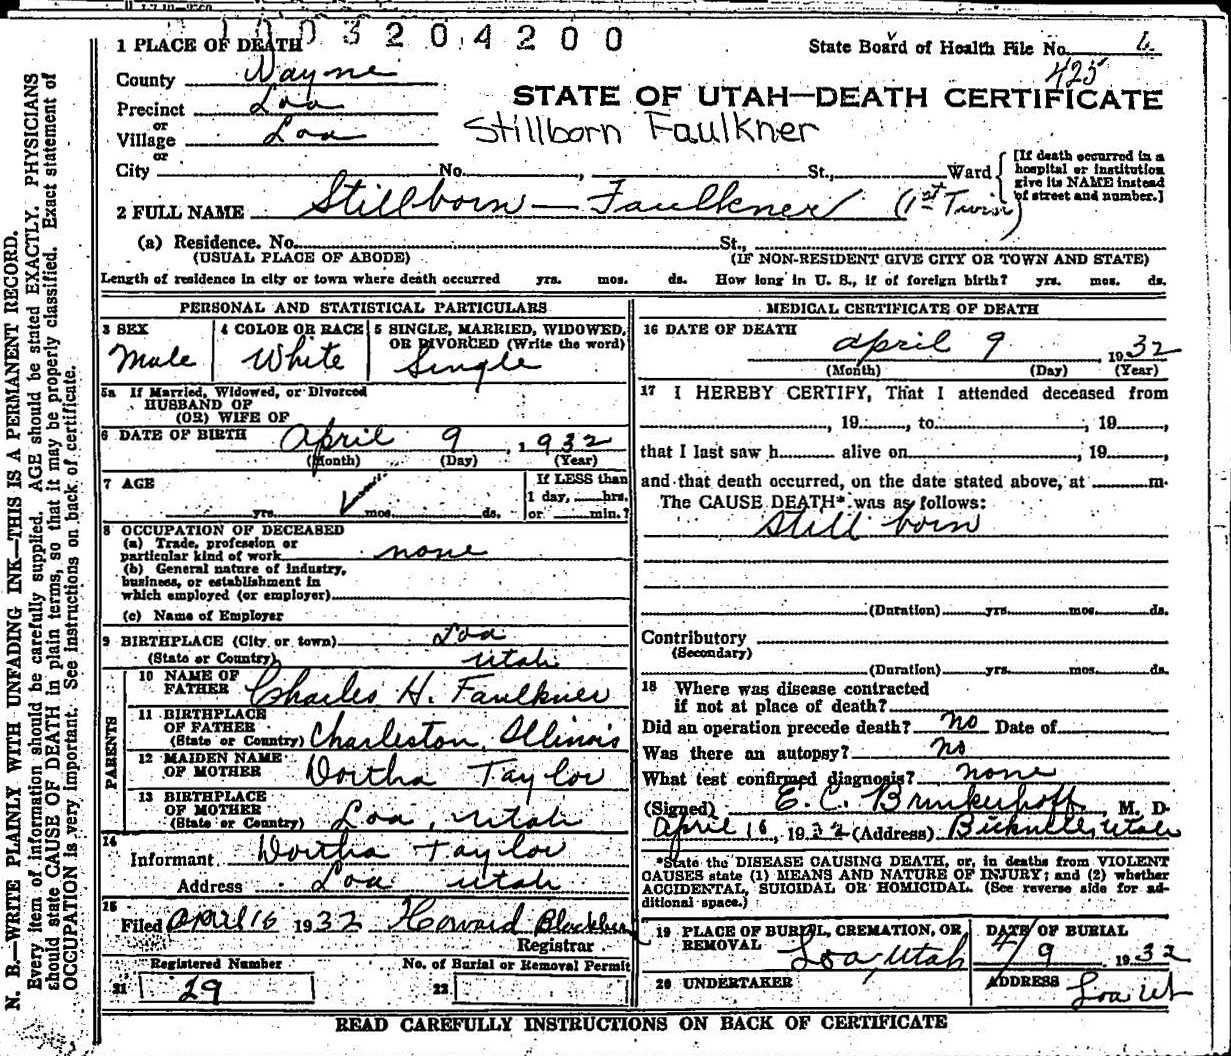 1003204200
1 PLACE OF DEATH
State Board of Health File No. 6
425
County Wayne
STATE OF UTAH—DEATH CERTIFICATE
Precinct Loa
or
Village Loa
Stillborn Faulkner
or
City No. , St., Ward
[If death occurred in a hospital or institution give its NAME instead of street and number.]
2 FULL NAME Stillborn — Faulkner (1st Twin)
(a) Residence. No. St.,
(USUAL PLACE OF ABODE) (IF NON-RESIDENT GIVE CITY OR TOWN AND STATE)
Length of residence in city or town where death occurred yrs. mos. ds. How long in U. S., if of foreign birth? yrs. mos. ds.
PERSONAL AND STATISTICAL PARTICULARS
3 SEX Male
4 COLOR OR RACE White
5 SINGLE, MARRIED, WIDOWED, OR DIVORCED (Write the word) Single
5a If Married, Widowed, or Divorced
HUSBAND OF
(OR) WIFE OF
6 DATE OF BIRTH April 9, 1932
(Month) (Day) (Year)
7 AGE
yrs. mos. ds.
If LESS than
1 day, hrs.
or min.?
8 OCCUPATION OF DECEASED
(a) Trade, profession or
particular kind of work none
(b) General nature of industry,
business, or establishment in
which employed (or employer)
(c) Name of Employer
9 BIRTHPLACE (City or town) Loa
(State or Country) Utah
PARENTS
10 NAME OF
FATHER Charles H. Faulkner
11 BIRTHPLACE
OF FATHER
(State or Country) Charleston, Illinois
12 MAIDEN NAME
OF MOTHER Dortha Taylor
13 BIRTHPLACE
OF MOTHER
(State or Country) Loa, Utah
14
Informant Dortha Taylor
Address Loa Utah
15
Filed April 16 1932 Howard Blackburn
Registrar
Registered Number No. of Burial or Removal Permit
21 29 22
MEDICAL CERTIFICATE OF DEATH
16 DATE OF DEATH
April 9, 1932
(Month) (Day) (Year)
17 I HEREBY CERTIFY, That I attended deceased from
, 19 , to , 19 ,
that I last saw h alive on , 19 ,
and that death occurred, on the date stated above, at m.
The CAUSE DEATH* was as follows:
Still born
(Duration) yrs. mos. ds.
Contributory
(Secondary)
(Duration) yrs. mos. ds.
18 Where was disease contracted
if not at place of death?
Did an operation precede death? no Date of
Was there an autopsy? no
What test confirmed diagnosis? none
(Signed) E. C. Brinkerhoff, M. D.
April 16, 1932 (Address) Bicknell, Utah
*State the DISEASE CAUSING DEATH, or, in deaths from VIOLENT
CAUSES state (1) MEANS AND NATURE OF INJURY; and (2) whether
ACCIDENTAL, SUICIDAL OR HOMICIDAL. (See reverse side for ad-
ditional space.)
19 PLACE OF BURIAL, CREMATION, OR
REMOVAL Loa, Utah
DATE OF BURIAL
4/9 1932
20 UNDERTAKER
ADDRESS Loa Ut
READ CAREFULLY INSTRUCTIONS ON BACK OF CERTIFICATE
N. B.—WRITE PLAINLY WITH UNFADING INK—THIS IS A PERMANENT RECORD.
Every item of information should be carefully supplied. AGE should be stated EXACTLY. PHYSICIANS
should state CAUSE OF DEATH in plain terms, so that it may be properly classified. Exact statement of
OCCUPATION is very important. See instructions on back of certificate.